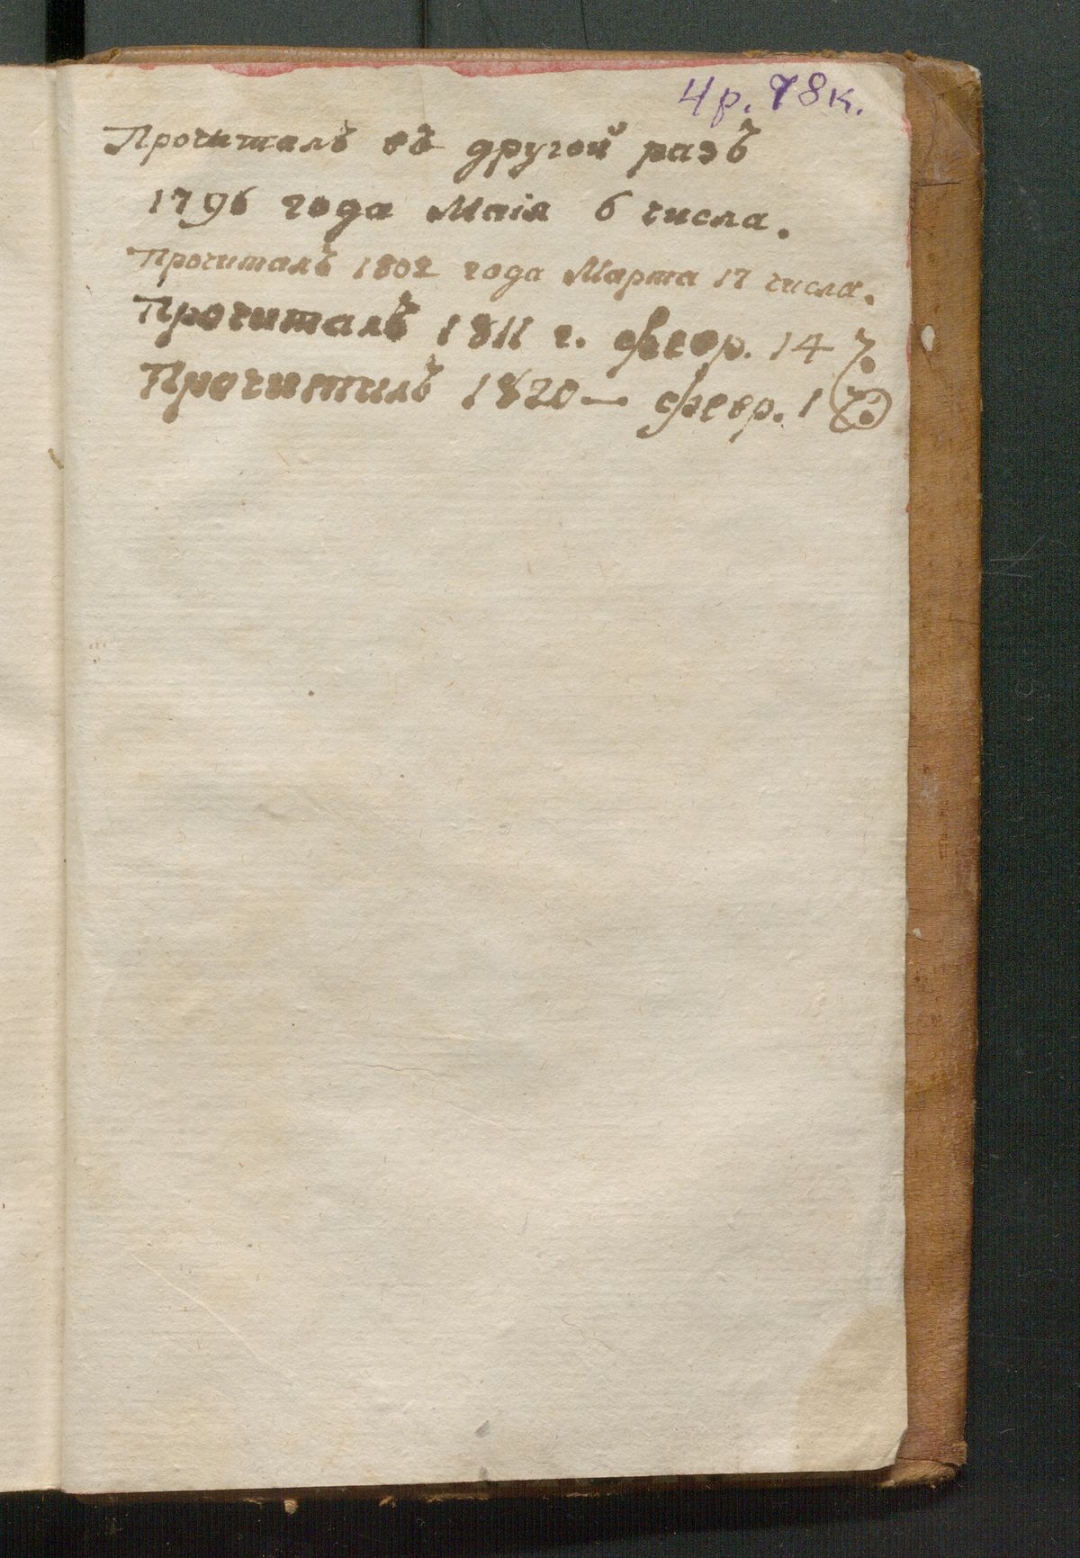 4 р. 78 к.
Прочиталъ въ другой разъ
1796 года Маія 6 числа.
Прочиталъ 1802 года Марта 17 числа.
Прочиталъ 1811 г. февр. 14
Прочиталъ 1820 — февр. 1